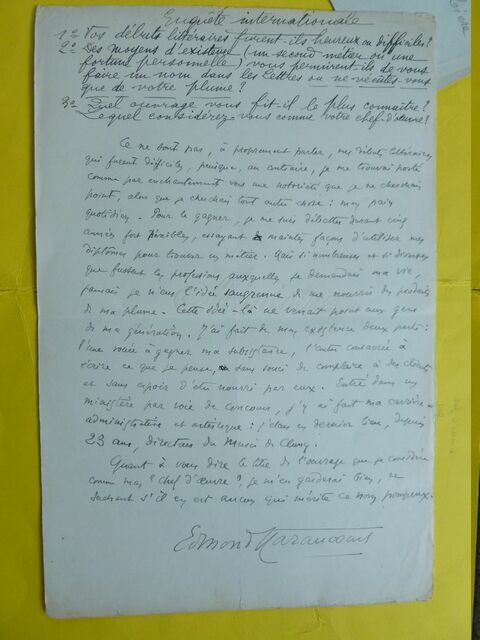 Enquête internationale
1º Vos débuts littéraires furent-ils heureux ou difficiles?
2º Des moyens d'existence (un second métier ou une
fortune personnelle) vous permirent-ils de vous
faire un nom dans les lettres ou ne vécutes-vous
que de votre plume?
3º Quel ouvrage vous fit-il le plus connaître?
Lequel considérez-vous comme votre chef-d'œuvre?
Ce ne sont pas, à proprement parler, mes débuts littéraires
qui furent difficiles, puisque, au contraire, je me trouvai porté
comme par enchantement vers une notoriété que je ne cherchais
point, alors que je cherchais tout autre chose : mon pain
quotidien. Pour le gagner, je me suis débattu durant cinq
années fort pénibles, essayant maintes façons d'utiliser mes
diplômes pour trouver un métier. Mais si nombreuses et si diverses
que fussent les professions auxquelles je demandai ma vie,
jamais je n'eus l'idée saugrenue de me nourrir des produits
de ma plume. Cette idée-là ne venait point aux gens
de ma génération. J'ai fait de mon existence deux parts :
l'une vouée à gagner ma subsistance, l'autre consacrée à
écrire ce que je pense, sans souci de complaire à des clients
et sans espoir d'être nourri par eux. Entré dans un
ministère par voie de concours, j'y ai fait ma carrière
administrative et artistique : j'étais en dernier lieu, depuis
23 ans, directeur du Musée de Cluny.
Quant à vous dire le titre de l'ouvrage que je considère
comme mon "chef d'œuvre", je m'en garderai bien, ne
sachant s'il en est aucun qui mérite ce nom pompeux.
Edmond Haraucourt